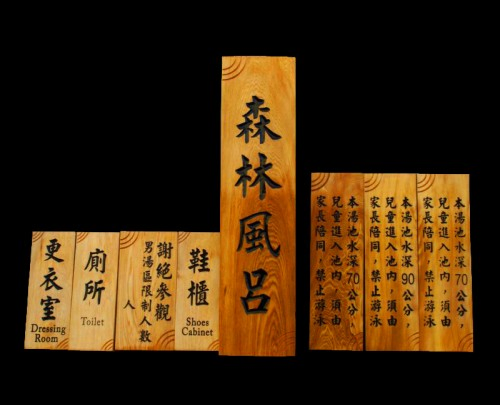 更衣室
Dressing
Room
廁所
Toilet
謝絕參觀
男湯區限制人數
人
鞋櫃
Shoes
Cabinet
森林風呂
本湯池水深70公分，
兒童進入池內，須由
家長陪同，禁止游泳
本湯池水深90公分，
兒童進入池內，須由
家長陪同，禁止游泳
本湯池水深70公分，
兒童進入池內，須由
家長陪同，禁止游泳